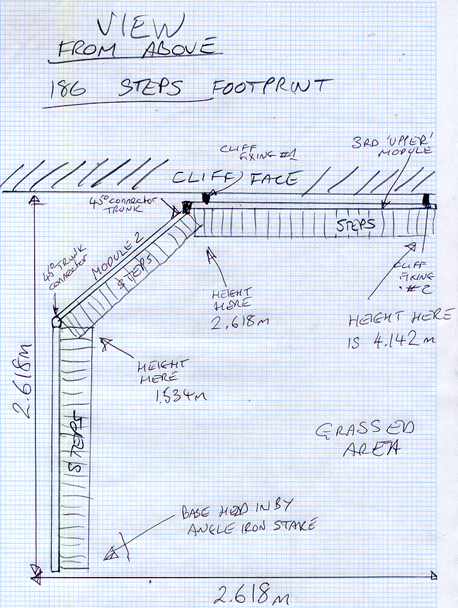 VIEW
FROM ABOVE
186 STEPS FOOTPRINT
CLIFF
FIXING #1
3RD 'UPPER'
MODULE
CLIFF FACE
45° CONNECTOR
TRUNK
STEPS
45° TRUNK
CONNECTOR
MODULE 2
STEPS
CLIFF
FIXING
#2
HEIGHT
HERE
2.618M
HEIGHT HERE
IS 4.142M
HEIGHT
HERE
1.534M
2.618M
STEPS
GRASSED
AREA
BASE HELD IN BY
ANGLE IRON STAKE
2.618M